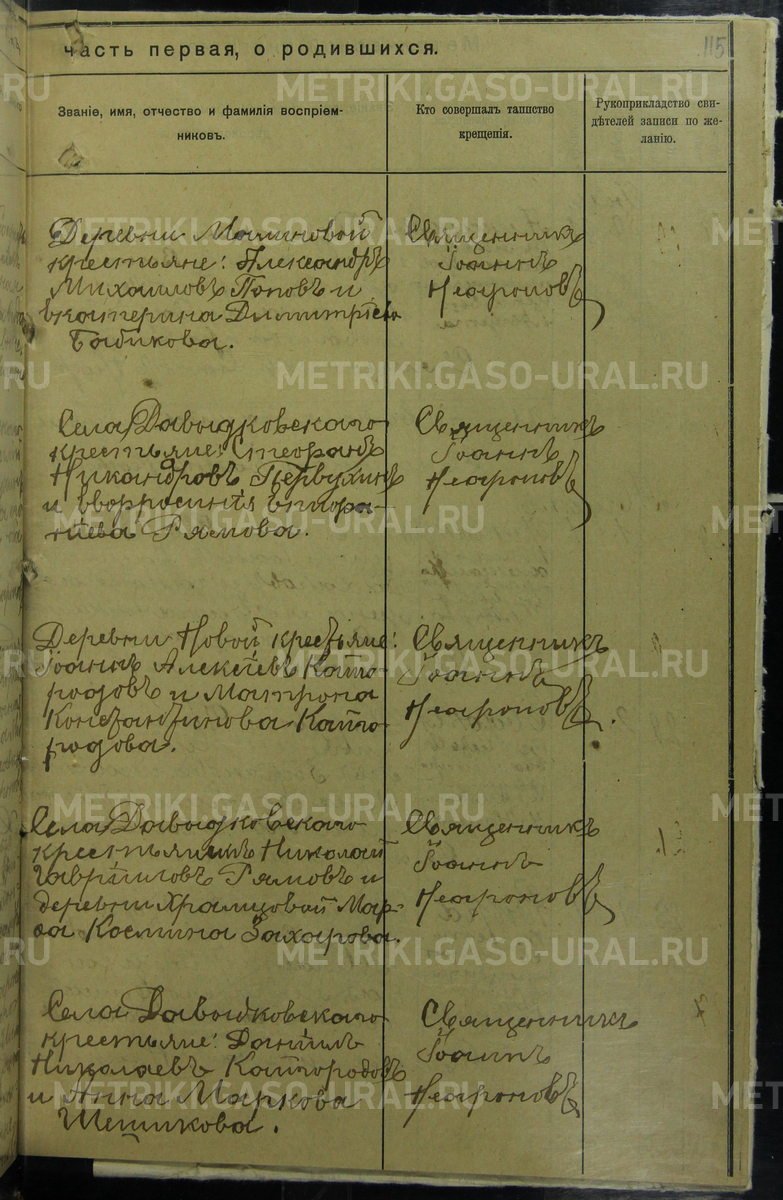 часть первая, о родившихся.
115
Званіе, имя, отчество и фамилія воспріем-
никовъ.
Кто совершалъ таинство
крещенія.
Рукоприкладство сви-
дѣтелей записи по же-
ланію.
Деревни Малиновой
крестьяне: Александръ
Михаиловъ Поповъ и
Екатерина Димитріева
Бабикова.
Священникъ
Іоаннъ
Неароновъ
Села Давыдковскаго
крестьяне: Стефанъ
Никандровъ Первухинъ
и Евфросинія
Рямова.
Священникъ
Іоаннъ
Неароновъ
Деревни Новой крестьяне:
Іоаннъ Алексѣевъ Кайго-
родовъ и Матрона
Константинова Кайго-
родова.
Священникъ
Іоаннъ
Неароновъ
Села Давыдковскаго
крестьянинъ Николай
Гавриловъ Рямовъ и
деревни Храмцовой Мар-
ѳа Космина Захарова.
Священникъ
Іоаннъ
Неароновъ
Села Давыдковскаго
крестьяне: Даніилъ
Николаевъ Кайгородовъ
и Анна Маркова
Шешикова.
Священникъ
Іоаннъ
Неароновъ
METRIKI.GASO-URAL.RU